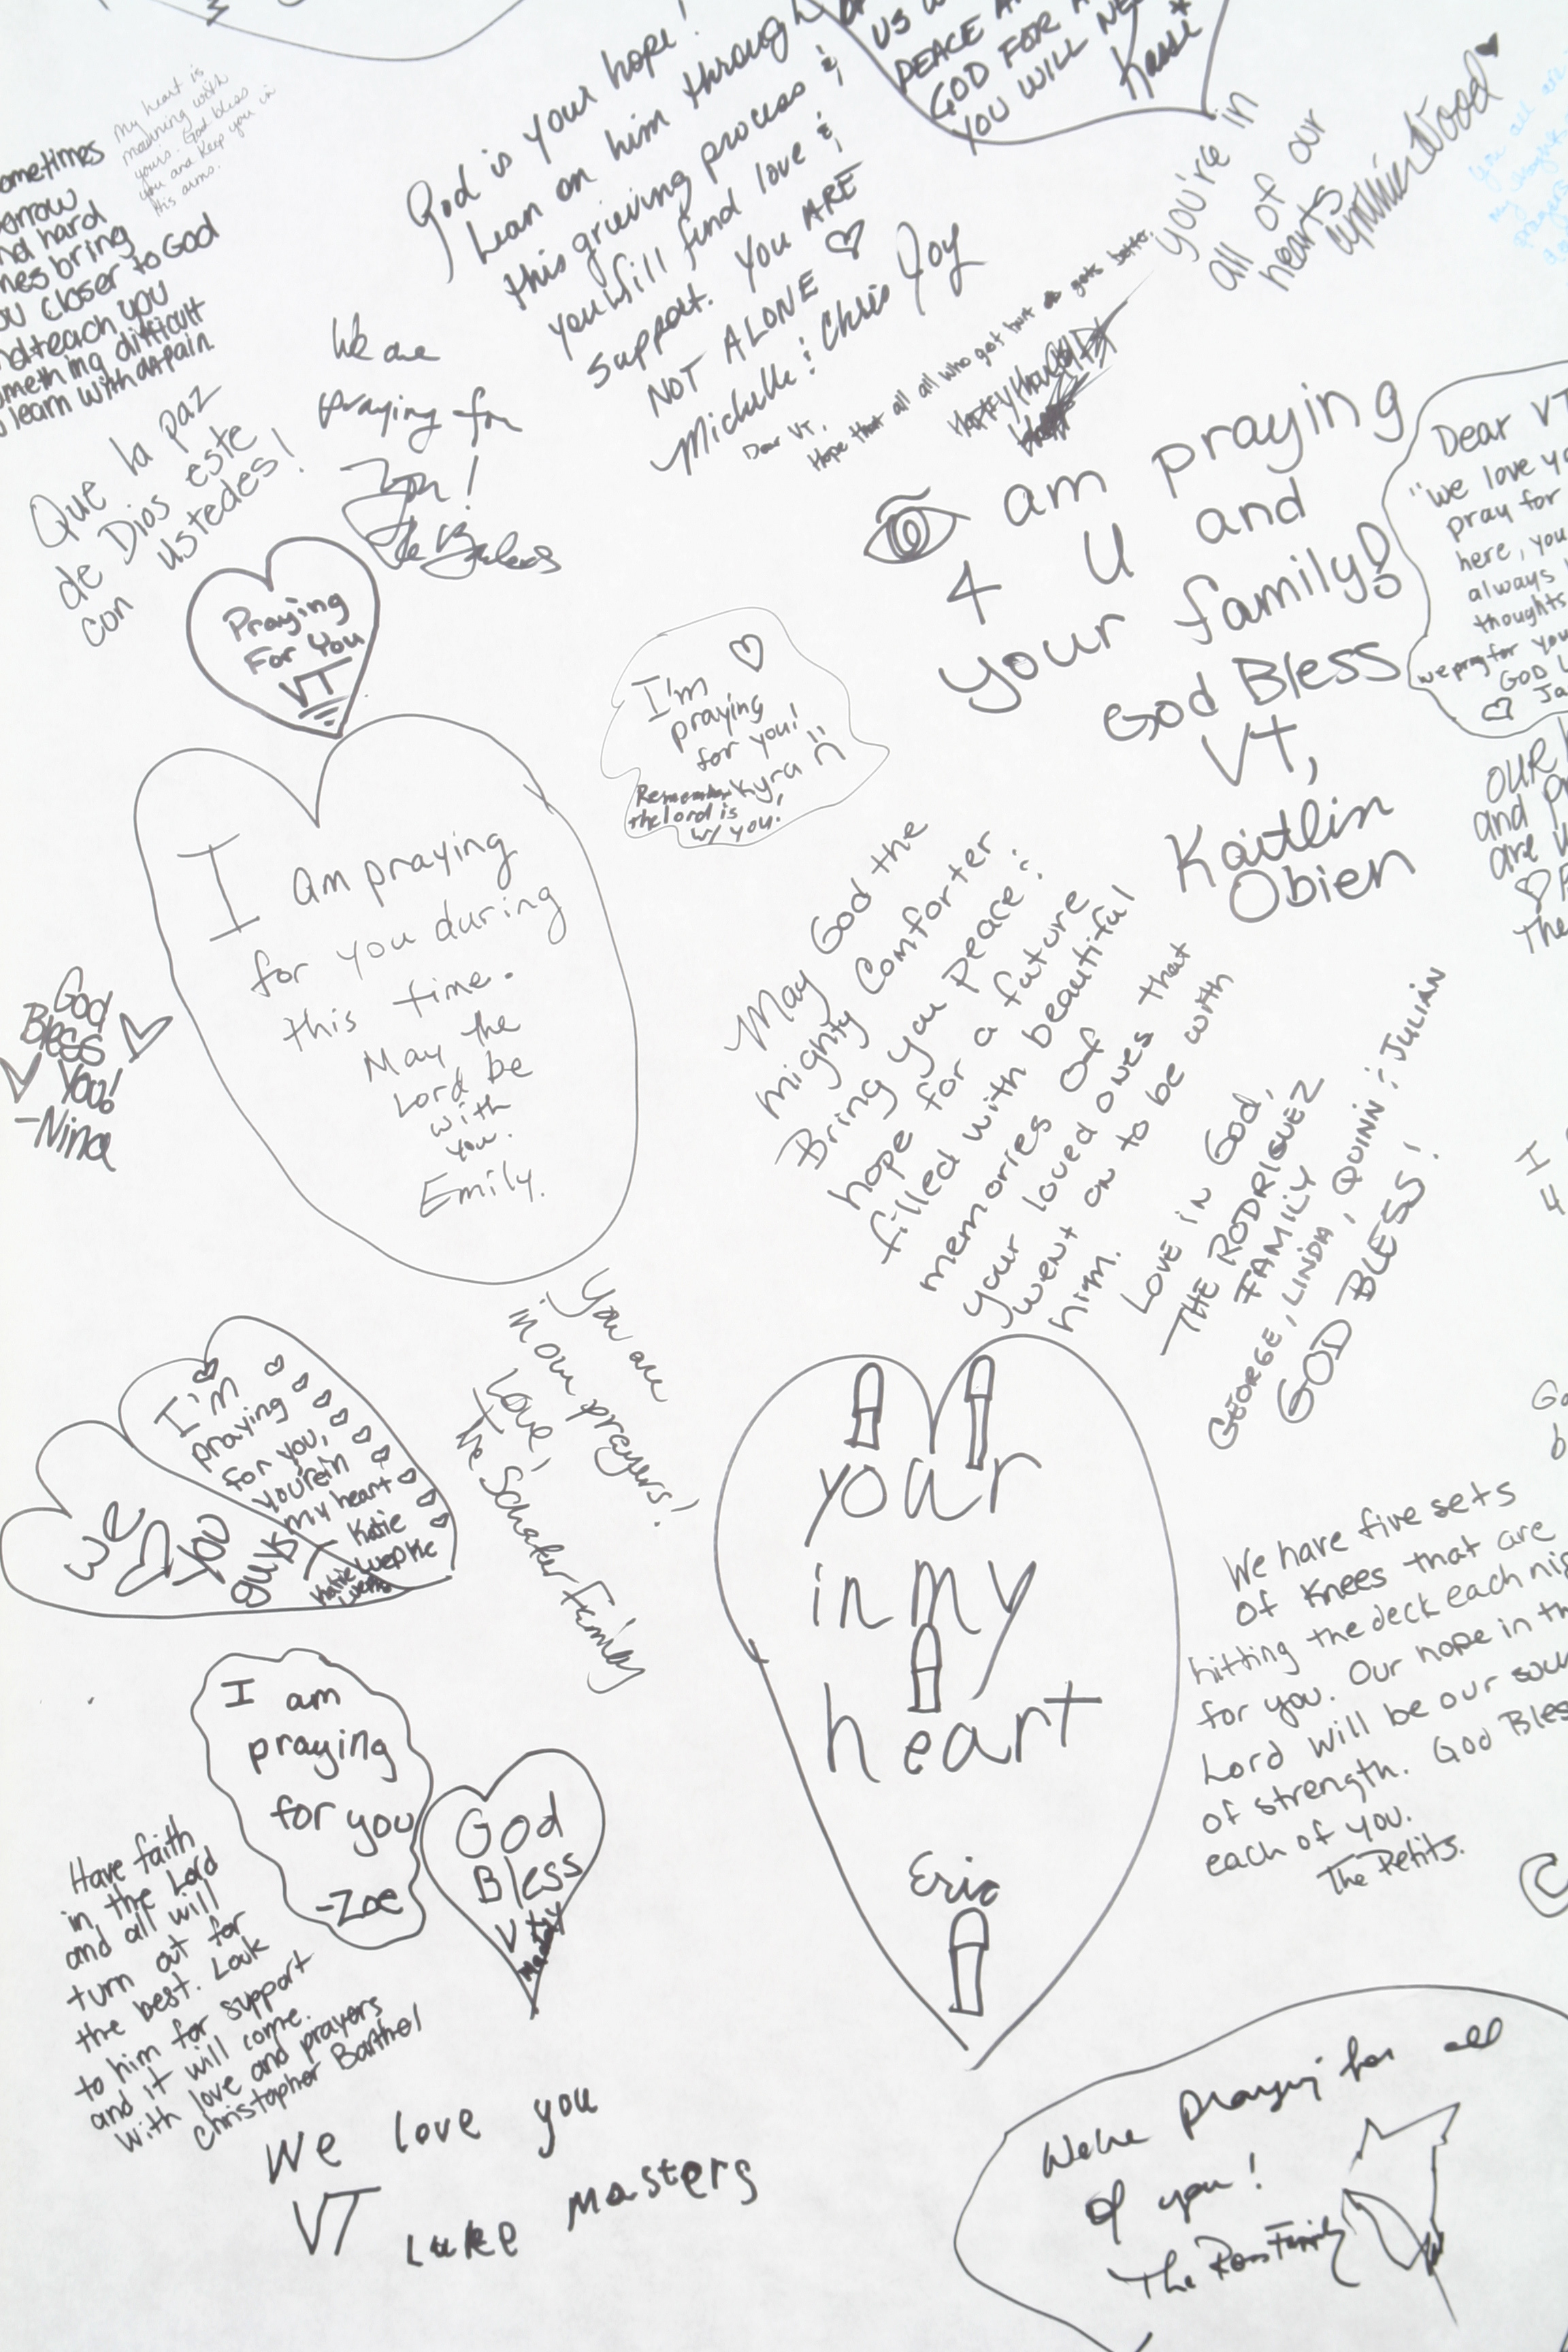 US
PEACE
GOD FOR
YOU WILL
Kassi
My heart is
mourning with
yours. God bless
you and keep you in
His arms.
ometimes
orrow
nd hard
mes bring
ou closer to God
nd teach you
omething difficult
o learn with a pain
God is your hope!
Lean on him through
this grieving process &
you will find love &
support. You ARE
NOT ALONE ♡
Michelle & Chris Joy
you're in
all of our
hearts
Cynthia Wood
We are
praying for
you!
Que la paz
de Dios este
con ustedes!
Dear VT,
Hope that all all who got hurt gets better.
I am praying
4 U and
your family!
God Bless
VT,
Kaitlin
Obien
Dear VT
"We love yo
pray for
here, you
always
thoughts
we pray for you
GOD
♡ Ja
Praying
For You
VT
♡
I'm
praying
for you!
Kyra
Remember
the lord is
w/ you!
OUR
and Pr
are
♡
The
I am praying
for you during
this time.
May the
Lord be
with
you.
Emily.
God
Bless
You!
-Nina
May God the
mighty Comforter
Bring you peace &
hope for a future
filled with beautiful
memories of
your loved ones that
went on to be with
him.
Love in God,
THE RODRIGUEZ
FAMILY
GEORGE, LINDA, QUINN & JULIAN
GOD BLESS!
I
4
You are
in our prayers!
Love,
the Schafer Family
I'm
praying
for you,
you're in
my heart
Katie
Luepke
we ♡ you
guys
your
in my
heart
Eric
Go
b
We have five sets
of knees that are
hitting the deck each nig
for you. Our hope in th
Lord will be our sour
of strength. God Bles
each of you.
The Petits.
I am
praying
for you
-Zoe
God
Bless
VT
Have faith
in the Lord
and all will
turn out for
the best. Look
to him for support
and it will come.
With love and prayers
Christopher Barthel
We love you
VT
Luke Masters
We're praying for all
of you!
The Ross Family